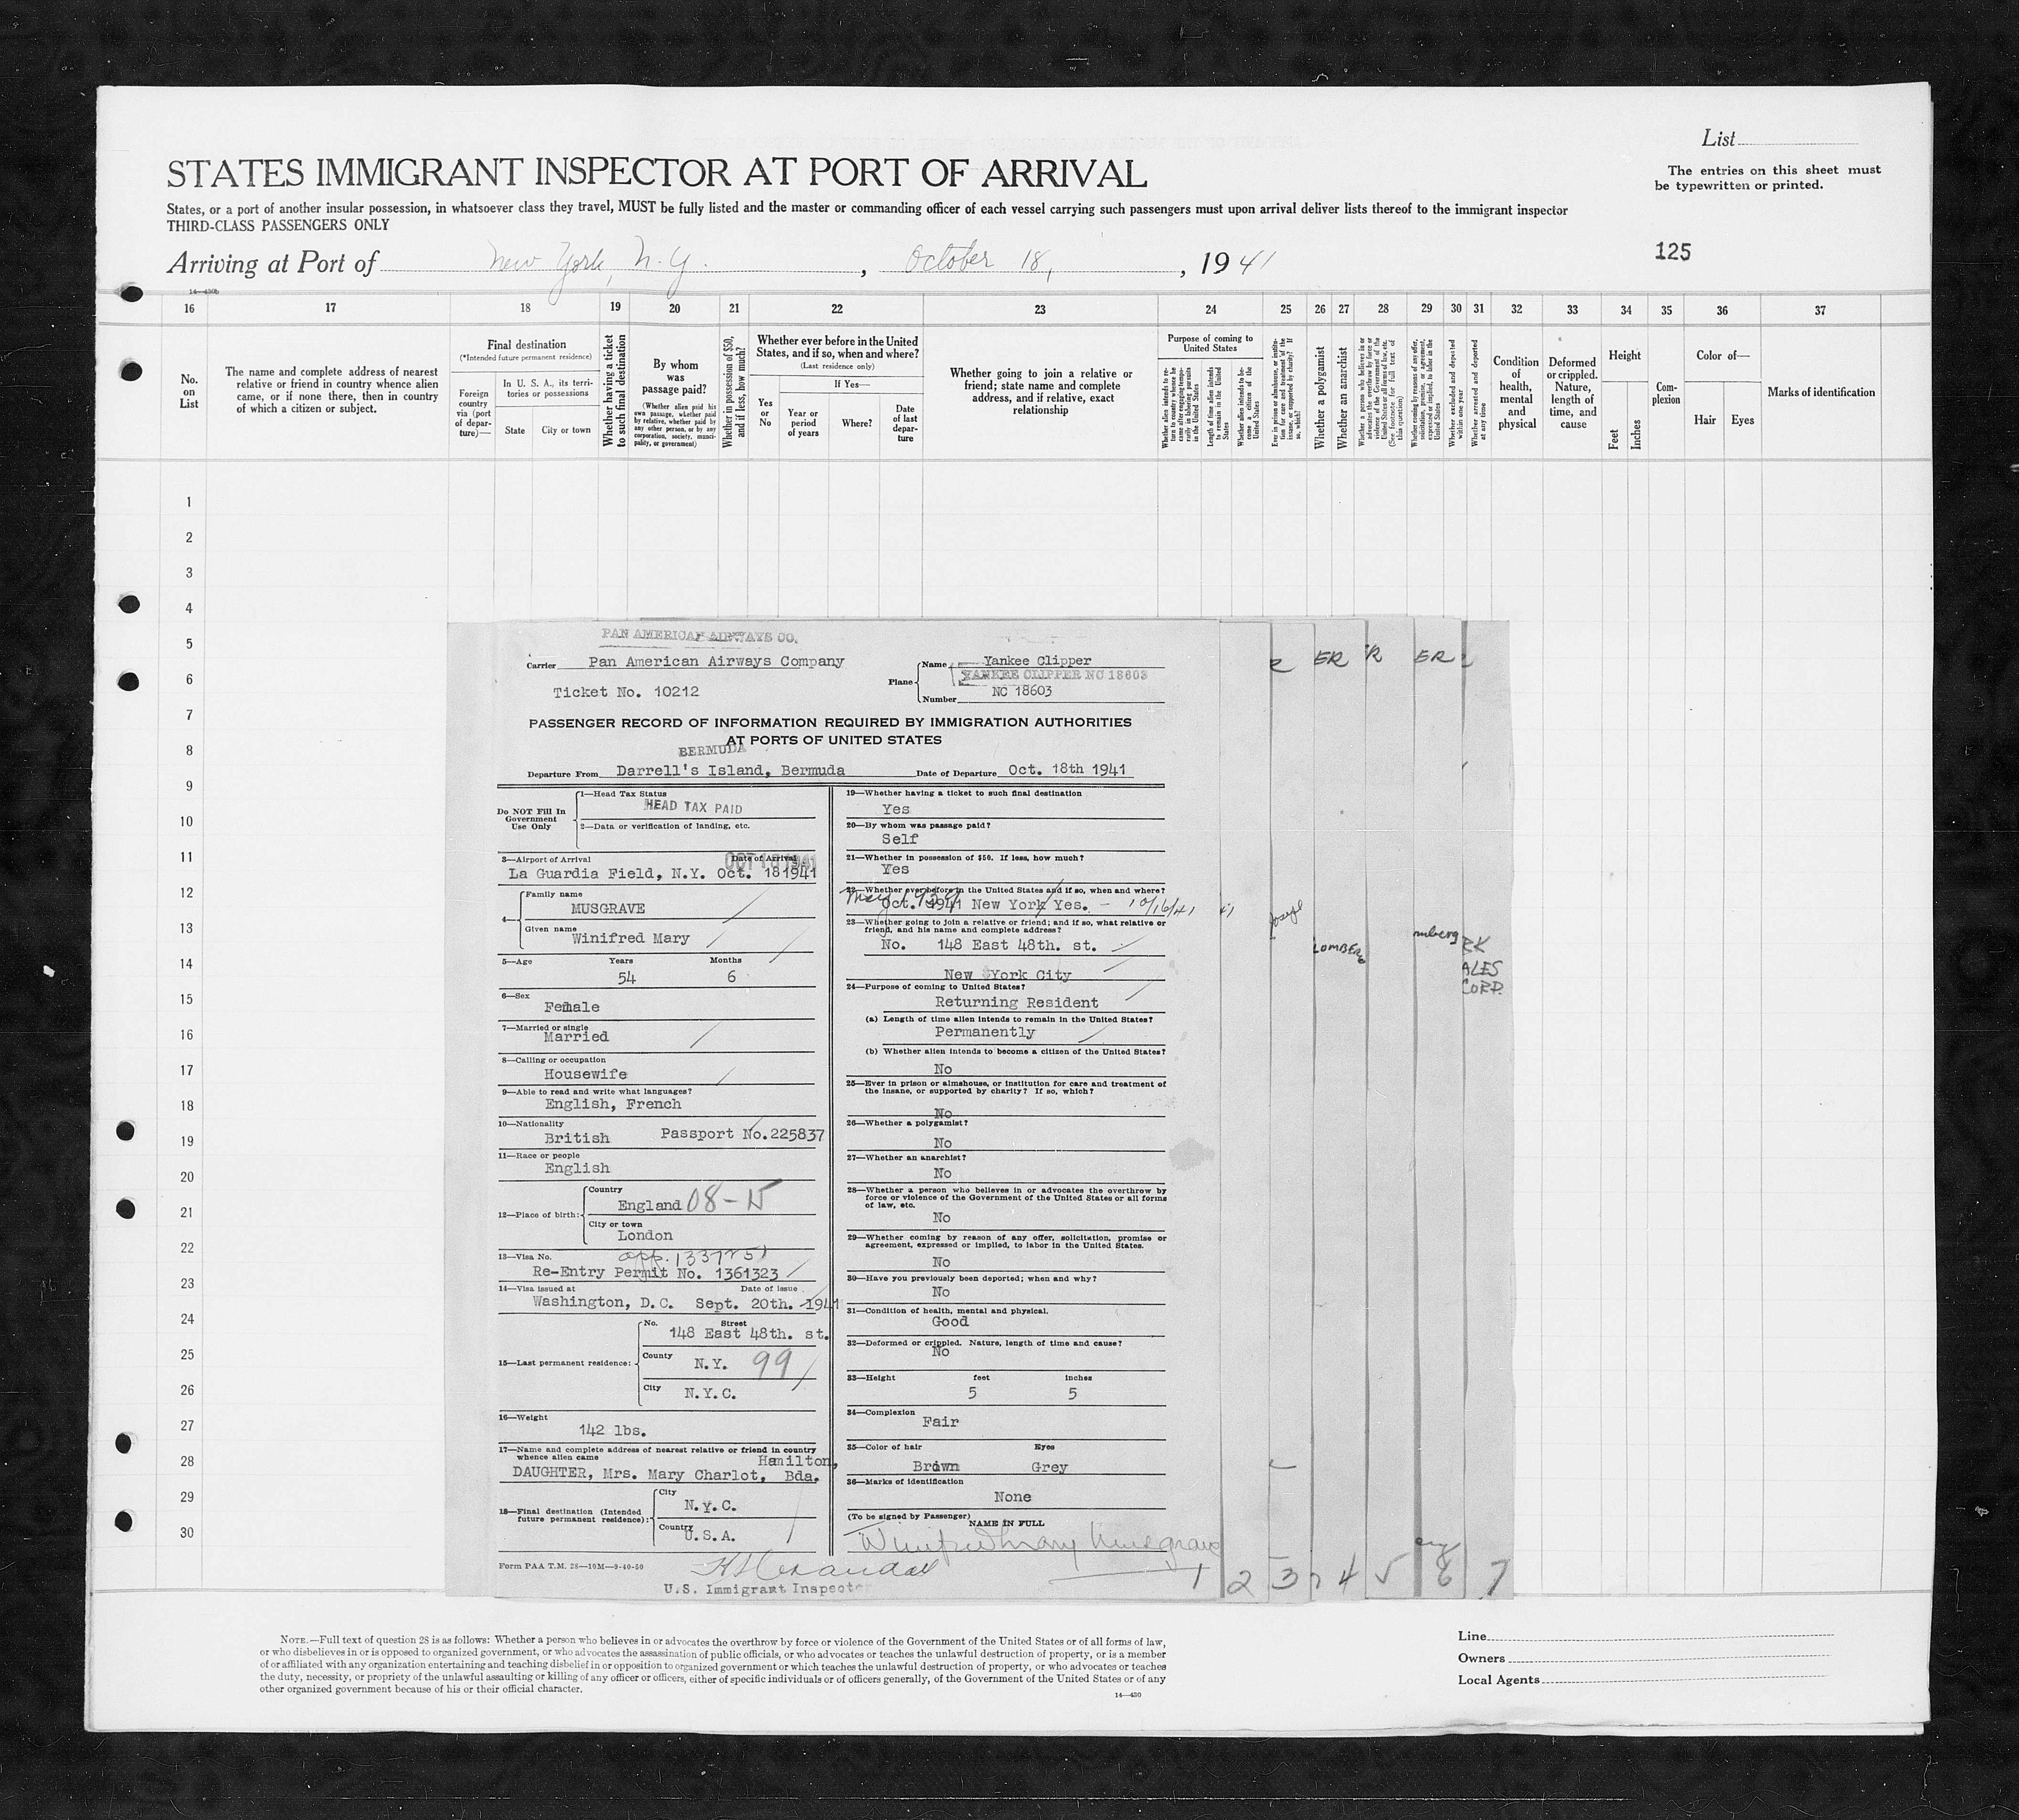 List
STATES IMMIGRANT INSPECTOR AT PORT OF ARRIVAL
The entries on this sheet must
be typewritten or printed.
States, or a port of another insular possession, in whatsoever class they travel, MUST be fully listed and the master or commanding officer of each vessel carrying such passengers must upon arrival deliver lists thereof to the immigrant inspector
THIRD-CLASS PASSENGERS ONLY
Arriving at Port of New York, N.Y., October 18, 1941
125
14—430b
16 17 18 19 20 21 22 23 24 25 26 27 28 29 30 31 32 33 34 35 36 37
No. on List
The name and complete address of nearest
relative or friend in country whence alien
came, or if none there, then in country
of which a citizen or subject.
Final destination
(*Intended future permanent residence)
Foreign country via (port of departure)—
In U. S. A., its territories or possessions
State
City or town
Whether having a ticket to such final destination
By whom was passage paid?
(Whether alien paid his own passage, whether paid by relative, whether paid by any other person, or by any corporation, society, municipality, or government)
Whether in possession of $50, and if less, how much?
Whether ever before in the United
States, and if so, when and where?
(Last residence only)
Yes or No
If Yes—
Year or period of years
Where?
Date of last departure
Whether going to join a relative or
friend; state name and complete
address, and if relative, exact
relationship
Purpose of coming to United States
Whether alien intends to return to country whence he came after engaging temporarily in laboring pursuits in the United States
Length of time alien intends to remain in the United States
Whether alien intends to become a citizen of the United States
Ever in prison or almshouse, or institution for care and treatment of the insane, or supported by charity? If so, which?
Whether a polygamist
Whether an anarchist
Whether a person who believes in or advocates the overthrow by force or violence of the Government of the United States or all forms of law, etc. (See footnote for full text of this question)
Whether coming by reasons of any offer, solicitation, promise, or agreement, expressed or implied, to labor in the United States
Whether excluded and deported within one year
Whether arrested and deported at any time
Condition of health, mental and physical
Deformed or crippled. Nature, length of time, and cause
Height
Feet
Inches
Complexion
Color of—
Hair
Eyes
Marks of identification
1
2
3
4
5
6
7
8
9
10
11
12
13
14
15
16
17
18
19
20
21
22
23
24
25
26
27
28
29
30
PAN AMERICAN AIRWAYS CO.
Carrier Pan American Airways Company
Plane Name Yankee Clipper
YANKEE CLIPPER NC 18603
Ticket No. 10212
Number NC 18603
PASSENGER RECORD OF INFORMATION REQUIRED BY IMMIGRATION AUTHORITIES
AT PORTS OF UNITED STATES
BERMUDA
Departure From Darrell's Island, Bermuda Date of Departure Oct. 18th 1941
Do NOT Fill In Government Use Only
1—Head Tax Status
HEAD TAX PAID
2—Data or verification of landing, etc.
3—Airport of Arrival Date of Arrival
OCT 18 1941
La Guardia Field, N.Y. Oct. 18 1941
4—
Family name
MUSGRAVE
Given name
Winifred Mary
5—Age Years Months
54 6
6—Sex
Female
7—Married or single
Married
8—Calling or occupation
Housewife
9—Able to read and write what languages?
English, French
10—Nationality
British Passport No. 225837
11—Race or people
English
12—Place of birth:
Country
England 08-
City or town
London
13—Visa No.
app.
Re-Entry Permit No. 1361323
14—Visa issued at Date of issue
Washington, D.C. Sept. 20th. 1941
15—Last permanent residence:
No. Street
148 East 48th. st.
County
N.Y. 99
City
N.Y.C.
16—Weight
142 lbs.
17—Name and complete address of nearest relative or friend in country
whence alien came Hamilton,
DAUGHTER, Mrs. Mary Charlot, Bda.
18—Final destination (Intended future permanent residence):
City
N.Y.C.
Country
U.S.A.
Form PAA T.M. 28—10M—9-40-50
U.S. Immigrant Inspector
19—Whether having a ticket to such final destination
Yes
20—By whom was passage paid?
Self
21—Whether in possession of $50. If less, how much?
Yes
22—Whether ever before in the United States and if so, when and where?
Oct. 1941 New York Yes. - 10/16/41
23—Whether going to join a relative or friend; and if so, what relative or
friend, and his name and complete address?
No. 148 East 48th. st.
New York City
24—Purpose of coming to United States?
Returning Resident
(a) Length of time alien intends to remain in the United States?
Permanently
(b) Whether alien intends to become a citizen of the United States?
No
25—Ever in prison or almshouse, or institution for care and treatment of
the insane, or supported by charity? If so, which?
No
26—Whether a polygamist?
No
27—Whether an anarchist?
No
28—Whether a person who believes in or advocates the overthrow by
force or violence of the Government of the United States or all forms
of law, etc.
No
29—Whether coming by reason of any offer, solicitation, promise or
agreement, expressed or implied, to labor in the United States.
No
30—Have you previously been deported; when and why?
No
31—Condition of health, mental and physical.
Good
32—Deformed or crippled. Nature, length of time and cause?
No
33—Height feet inches
5 5
34—Complexion
Fair
35—Color of hair Eyes
Brown Grey
36—Marks of identification
None
(To be signed by Passenger)
NAME IN FULL
Winifred Mary Musgrave
ER
ER
Joseph
LOMBERG
RK
ALES
CORP.
1 2 3 4 5 6 7
NOTE.—Full text of question 28 is as follows: Whether a person who believes in or advocates the overthrow by force or violence of the Government of the United States or of all forms of law,
or who disbelieves in or is opposed to organized government, or who advocates the assassination of public officials, or who advocates or teaches the unlawful destruction of property, or is a member
of or affiliated with any organization entertaining and teaching disbelief in or opposition to organized government or which teaches the unlawful destruction of property, or who advocates or teaches
the duty, necessity, or propriety of the unlawful assaulting or killing of any officer or officers, either of specific individuals or of officers generally, of the Government of the United States or of any
other organized government because of his or their official character.
14—430
Line
Owners
Local Agents